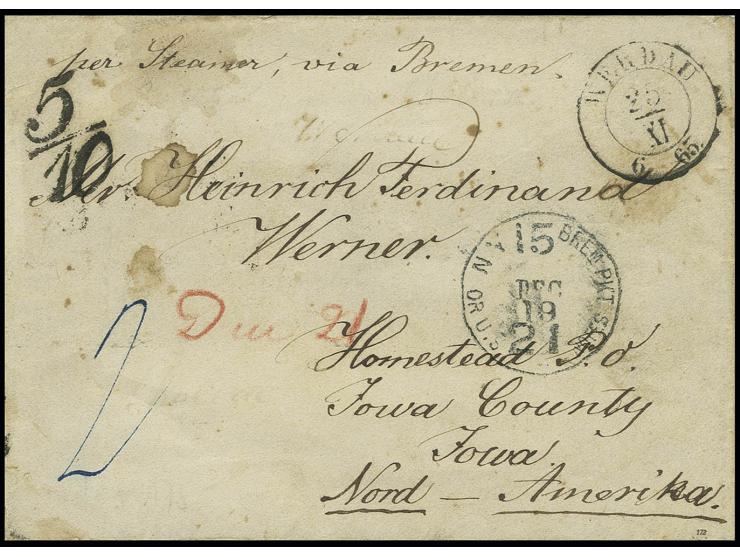 per Steamer, via Bremen.
25
XI
65
5/10
Mr Heinrich Ferdinand
Werner.
N.Y. 15 BREM. PKT.
DEC
19
21
OR U.S.
Due 21
Homestead P. O.
Iowa County
Iowa
Nord — Amerika.
172